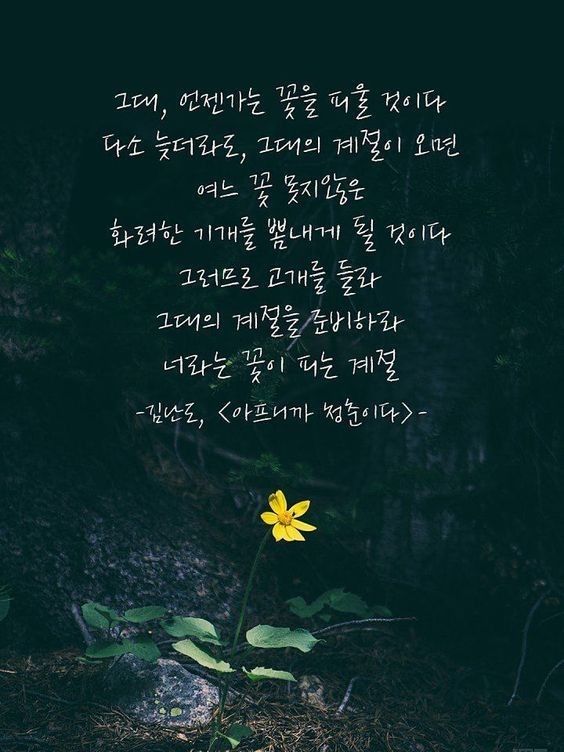 그대, 언젠가는 꽃을 피울 것이다
다소 늦더라도, 그대의 계절이 오면
여느 꽃 못지않은
화려한 기개를 뽐내게 될 것이다
그러므로 고개를 들라
그대의 계절을 준비하라
너라는 꽃이 피는 계절
-김난도, <아프니까 청춘이다>-